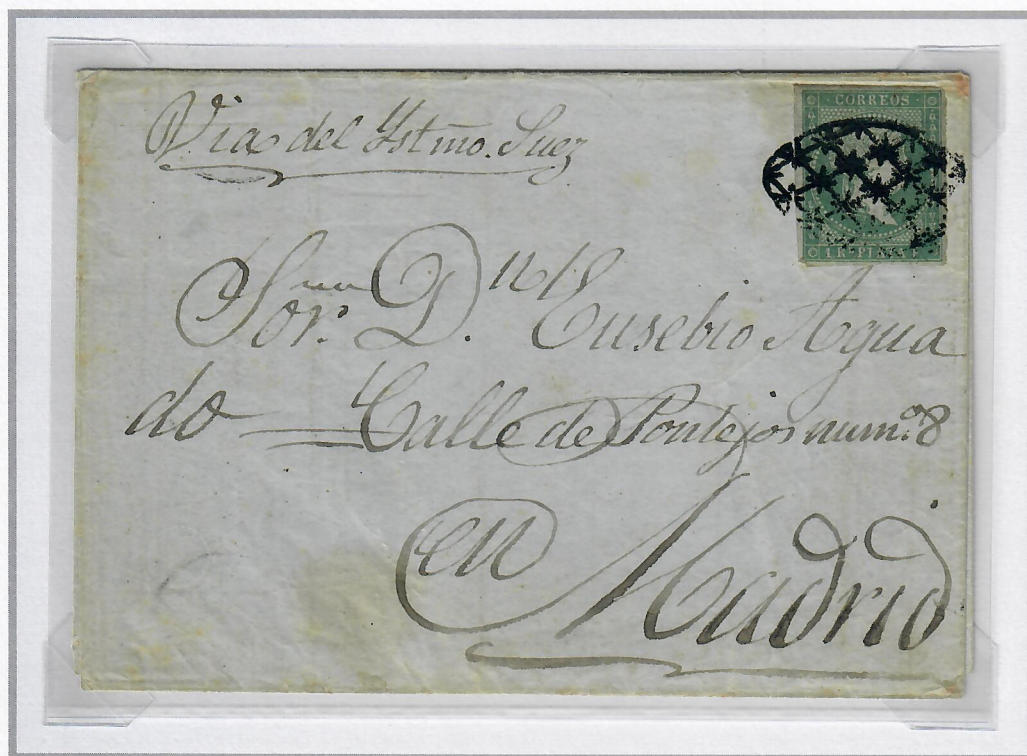 Via del Ystmo. Suez
CORREOS
1 Rl PLATA F
Sor. D. Eusebio Agua
do Calle de Pontejos num.o 8
en Madrid